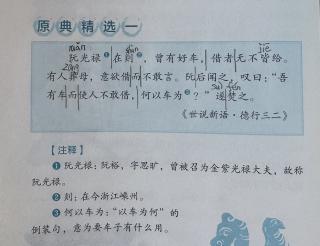 原典精选一
ruǎn shàn jiē
阮光禄❶在剡❷，曾有好车，借者无不皆给。
有人葬母，意欲借而不敢言。阮后闻之，叹曰：“吾
suì fén
有车而使人不敢借，何以车为❸？”遂焚之。
《世说新语·德行三二》
【注释】
❶ 阮光禄：阮裕，字思旷，曾被召为金紫光禄大夫，故称
阮光禄。
❷ 剡：在今浙江嵊州。
❸ 何以车为：“以车为何”的
倒装句，意为要车子有什么用。